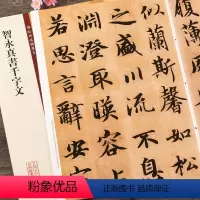 似蘭斯馨如松
之盛川流不息
淵澄取暎容止
若思言辭安定
智永真書千字文
粉象优品